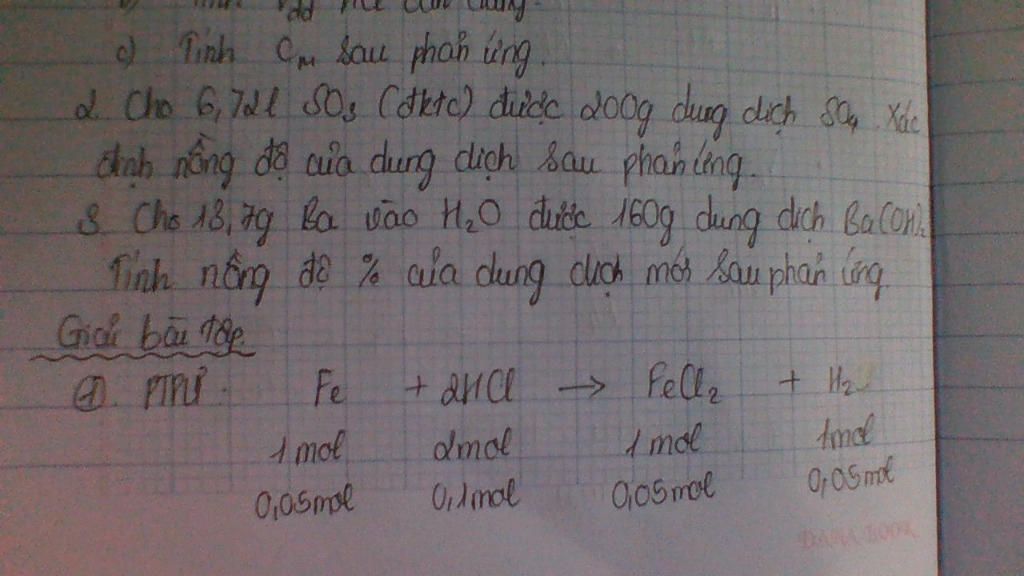 c) Tính CM sau phản ứng.
2. Cho 6,72l SO3 (đktc) được 200g dung dịch SO4. Xác
định nồng độ của dung dịch sau phản ứng.
3. Cho 13,7g Ba vào H2O được 160g dung dịch Ba(OH)2
Tính nồng độ % của dung dịch mới sau phản ứng.
Giải bài tập
① PTPƯ: Fe + 2HCl → FeCl2 + H2
1mol 2mol 1mol 1mol
0,05mol 0,1mol 0,05mol 0,05mol